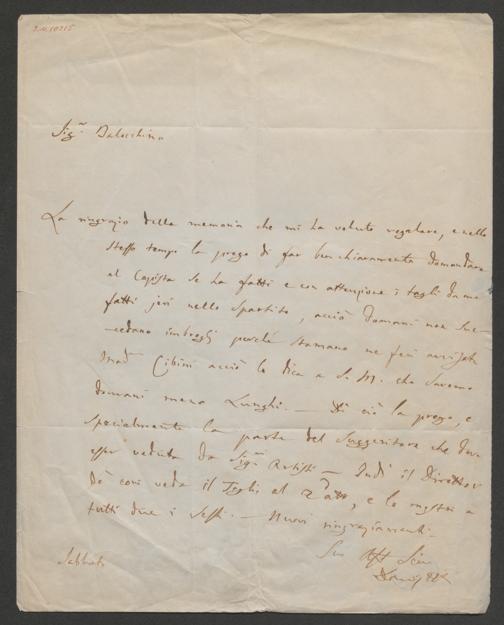 Sig.r Balocchino
La ringrazio della memoria che mi ha voluto regalare, e nello
stesso tempo la prego di far ben chiaramente domandare
al Copista se ha fatti e con attenzione i tagli da me
fatti jeri nello Spartito, acciò domani non suc-
-cedano imbrogli perché stamane ne feci
Mad. Cibini acciò lo dica a S. M. che saremo
domani meno Lunghi. — Di ciò la prego, e
specialmente la parte del Suggeritore che deve
esser veduta da Sig.ri Artisti — Indi il Direttor
de cori veda il Taglio al 2.do atto, e lo mostri a
tutti due i Sessi. — Nuovi ringraziamenti.
Suo Aff
Sabbato